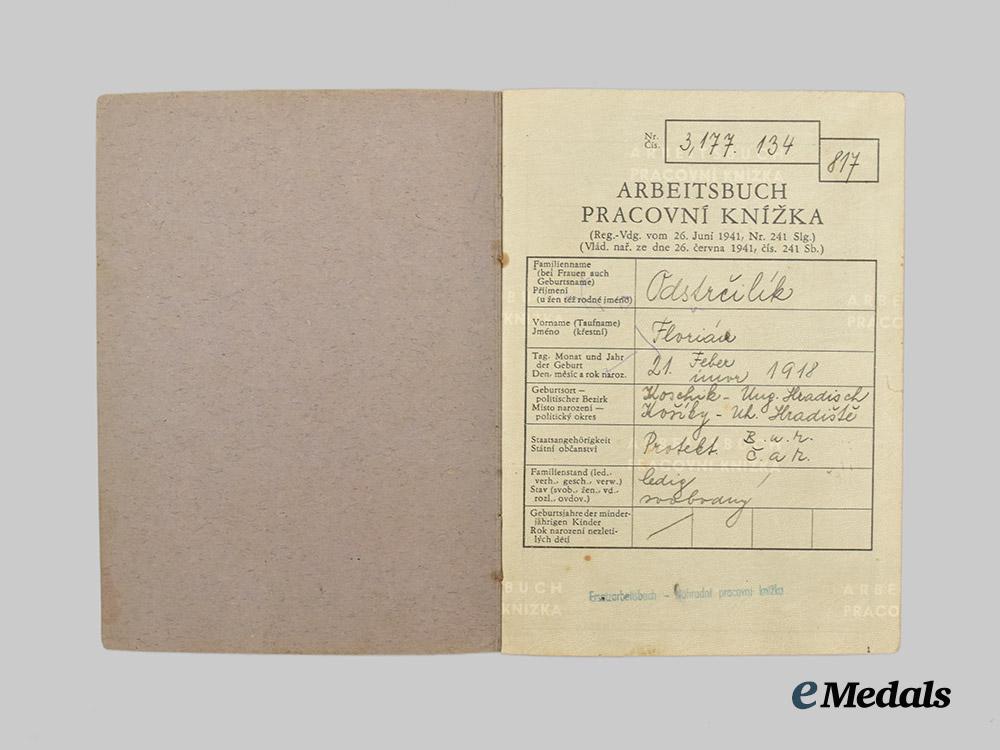 Nr.
Čís.
3,177. 134
817
ARBEITSBUCH
PRACOVNÍ KNÍŽKA
(Reg.-Vdg. vom 26. Juni 1941, Nr. 241 Slg.)
(Vlád. nař. ze dne 26. června 1941, čís. 241 Sb.)
Familienname
(bei Frauen auch
Geburtsname)
Příjmení
(u žen též rodné jméno)
Odstrčilík
Vorname (Taufname)
Jméno (křestní)
Florián
Tag, Monat und Jahr
der Geburt
Den, měsíc a rok naroz.
21. Feber
únor 1918
Geburtsort —
politischer Bezirk
Místo narození —
politický okres
Koschik - Ung. Hradisch
Košíky - Uh. Hradiště
Staatsangehörigkeit
Státní občanství
Protekt. B. u. M.
Č. a M.
Familienstand (led.,
verh., gesch., verw.)
Stav (svob., žen., vd.,
rozl., ovdov.)
ledig
svobodný
Geburtsjahre der minder-
jährigen Kinder
Rok narození nezleti-
lých dětí
Ersatzarbeitsbuch - Náhradní pracovní knížka
ARBEITSBUCH
PRACOVNÍ KNÍŽKA
ARBE
PRACO
KNÍŽKA
BUCH
KNÍŽKA
ARBE
PRACO
1
eMedals